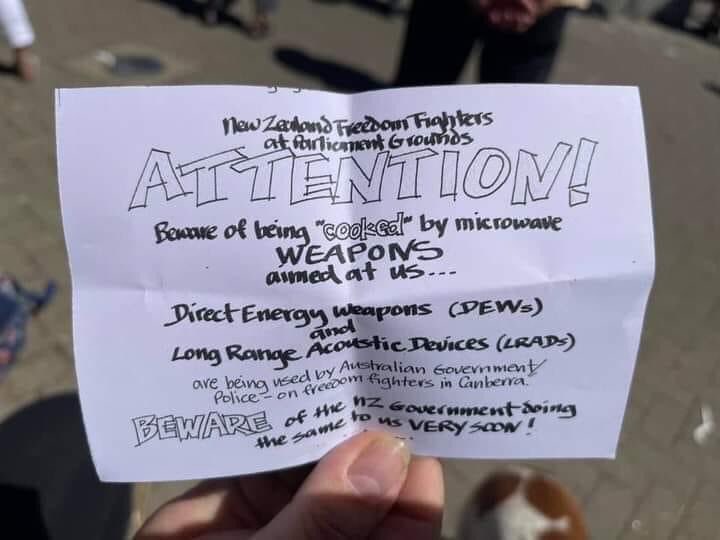 New Zealand Freedom Fighters
at Parliament Grounds
ATTENTION!
Beware of being "cooked" by microwave
WEAPONS
aimed at us...
Direct Energy Weapons (DEWs)
and
Long Range Acoustic Devices (LRADs)
are being used by Australian Government/
Police - on freedom fighters in Canberra.
BEWARE of the NZ Government doing
the same to us VERY SOON!